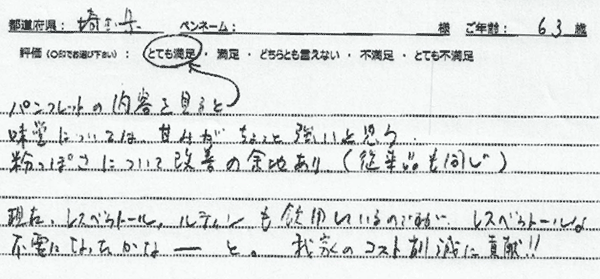 都道府県： 埼玉県 ペンネーム： 様 ご年齢： 63 歳
評価（○印でお選び下さい）： とても満足 ・ 満足 ・ どちらとも言えない ・ 不満足 ・ とても不満足
パンフレットの内容を見ると
味覚については、甘みがちょっと強いと思う.
粉っぽさについて改善の余地あり（従来品も同じ）
現在、レスベラトール、ルティンも飲用しているのですが、レスベラトールは
不要になったかなーと。 我家のコスト削減に貢献!!